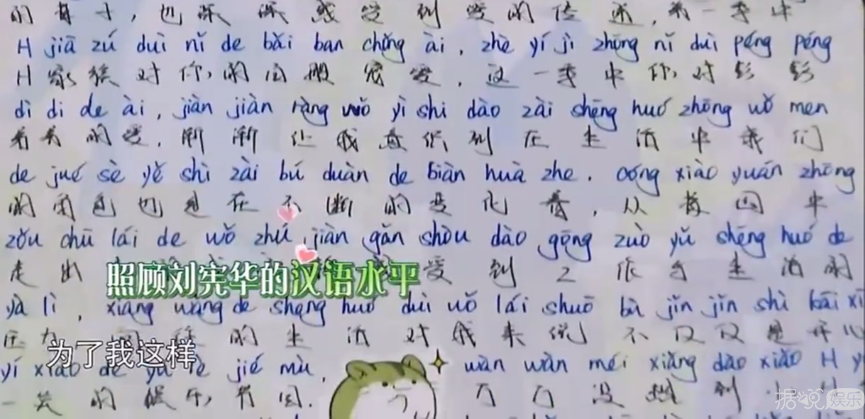 的骨子，也深深感受到爱的传递，有一季中
H jiā zú duì nǐ de bǎi ban chǒng ài，zhè yí jì zhōng nǐ duì péng péng
H 家族对你的百般宠爱，这一季中你对彭彭
dì di de ài，jiàn jiàn ràng wǒ yì shi dào zài shēng huó zhōng wǒ men
弟弟的爱，渐渐让我意识到在生活中我们
de jué sè yě shì zài bú duàn de biàn huà zhe，cóng xiào yuán zhōng
的角色也是在不断的变化着，从校园中
zǒu chū lái de wǒ zhú jiàn gǎn shòu dào gōng zuò yǔ shēng huó de
走出 受到工作与生活的
照顾刘宪华的汉语水平
yā lì，xiàng wǎng de shēng huó duì wǒ lái shuō bù jǐn jǐn shì kāi xī
压力 的生活对我来说不仅仅是开心
为了我这样
yí xiào de yú lè jié mù， wàn wàn méi xiǎng dào xiǎo H y
一笑的娱乐节目， 万万没想到
据说娱乐